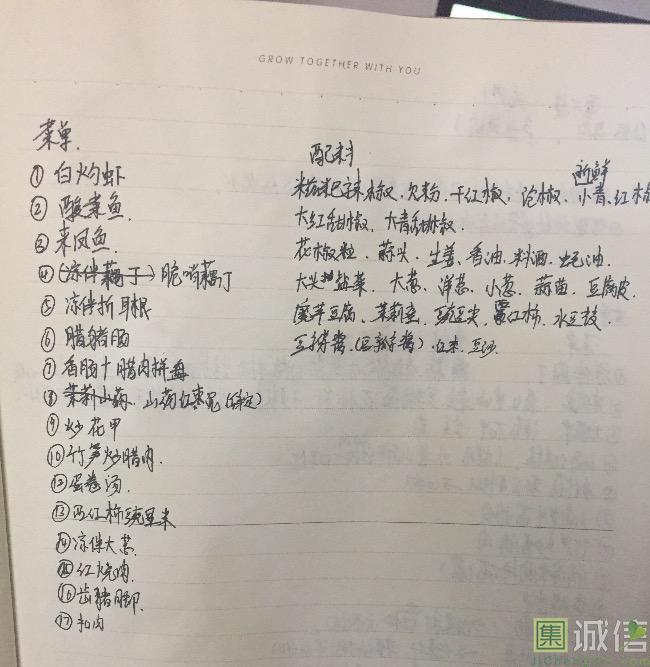 GROW TOGETHER WITH YOU
菜单
① 白灼虾
② 酸菜鱼
③ 来凤鱼
④ 脆哨藕丁
⑤ 凉伴折耳根
⑥ 腊猪肠
⑦ 香肠十腊肉拼盘
⑧ 茉莉山药、山药红枣泥(待定)
⑨ 炒花甲
⑩ 竹笋炒腊肉
⑫ 蛋卷汤
⑬ 西红柿豌豆米
⑭ 凉伴大葱
红烧肉
⑯ 卤猪脚
⑰ 扣肉
配料
新鲜
糍粑辣椒、欠粉、干红椒、泡椒、小青、红椒
大红甜椒、大青甜椒
花椒粒、蒜头、生姜、香油、料酒、蚝油
大头盐菜、大葱、洋葱、小葱、蒜苗、豆腐皮
魔芋豆腐、豌豆尖、水豆豉
白米、豆沙
集诚信